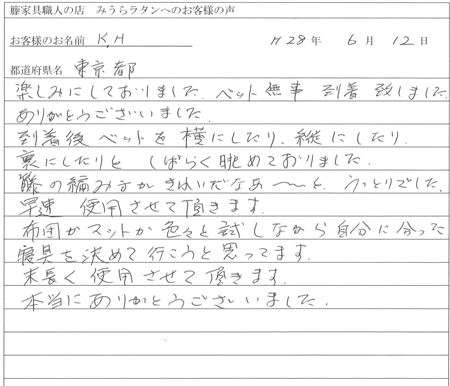 籐家具職人の店 みうらラタンへのお客様の声
お客様のお名前 K.H H28年 6月 12日
都道府県名 東京都
楽しみにしておりました。ベット無事 到着 致しました
ありがとうございました。
到着後 ベットを 横にしたり、縦にしたり、
裏にしたりと しばらく眺めておりました。
籐の編み方が きれいだなあ〜と、うっとりでした。
早速 使用させて頂きます。
布団かマットか 色々と 試しながら 自分に合った
寝具を決めて行こうと思ってます。
末長く使用させて頂きます。
本当にありがとうございました。